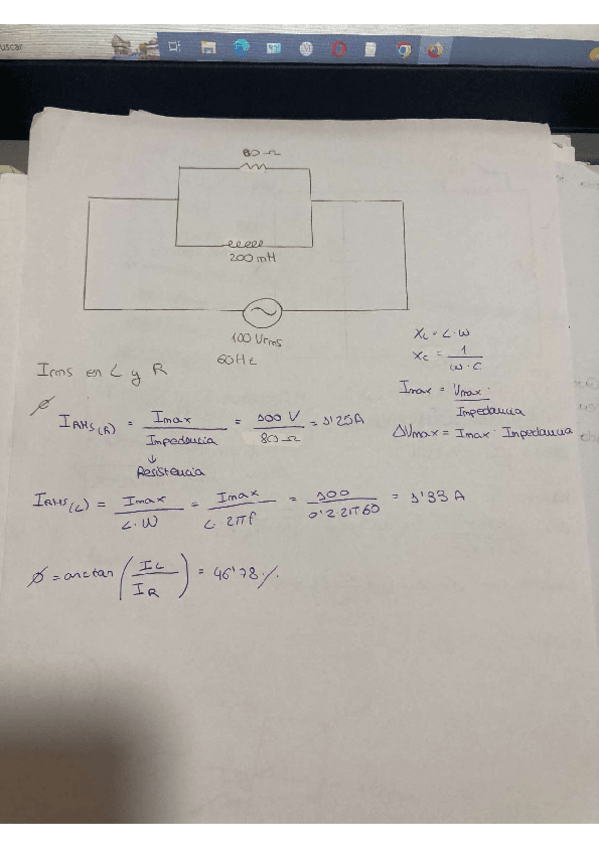 uscar
80 Ω
200 mH
100 Vrms
60 Hz
Irms en L y R
XL = L·W
Xc = 1 / W·C
Imax = Vmax / Impedancia
ΔVmax = Imax · Impedancia
ø
I RMS (R) = Imax / Impedancia = 100 V / 80 Ω = 1'25 A
↓
Resistencia
I RMS (L) = Imax / L·W = Imax / L·2πf = 100 / 0'2·2π60 = 1'33 A
ø = arctan ( IL / IR ) = 46'78 %.